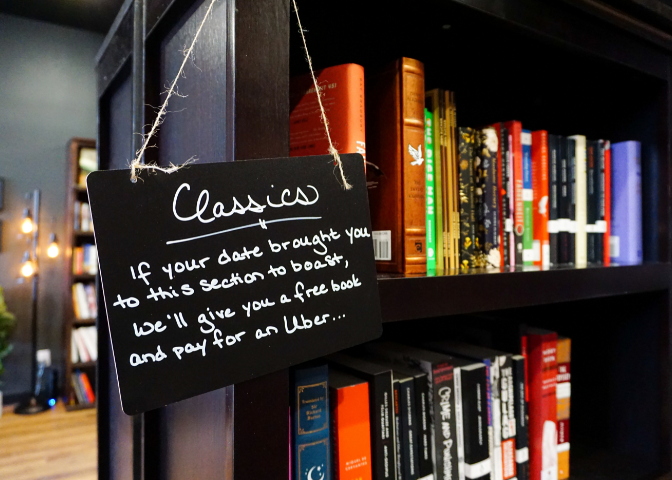 Classics
If your date brought you
to this section to boast,
we'll give you a free book
and pay for an Uber...